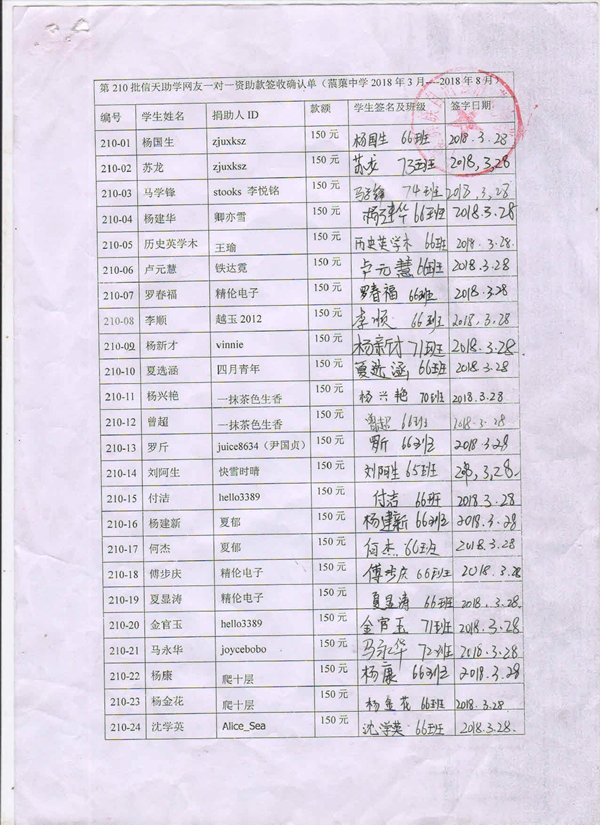 第 210 批信天助学网友一对一资助款签收确认单（蒗蕖中学 2018 年 3 月----2018 年 8 月）
编号 学生姓名 捐助人 ID 款额 学生签名及班级 签字日期
210-01 杨国生 zjuxksz 150 元 杨国生 66班 2018.3.28
210-02 苏龙 zjuxksz 150 元 苏龙 73班 2018,3,28
210-03 马学锋 stooks 李悦铭 150 元 马学锋 74班 2018,3,28
210-04 杨建华 卿亦雪 150 元 杨建华 66班 2018.3.28
210-05 历史英学木 王瑜 150 元 历史英学木 66班 2018.3.28.
210-06 卢元慧 铁达霓 150 元 卢元慧 66班 2018.3.28
210-07 罗春福 精伦电子 150 元 罗春福 66班 2018.3.28
210-08 李顺 越玉 2012 150 元 李顺 66班 2018.3.28
210-09 杨新才 vinnie 150 元 杨新才 71班 2018.3.28
210-10 夏选涵 四月青年 150 元 夏选涵 66班 2018.3.28
210-11 杨兴艳 一抹茶色生香 150 元 杨兴艳 70班 2018.3.28
210-12 曾超 一抹茶色生香 150 元 曾超 66班 2018.3.28
210-13 罗斤 juice8634（尹国贞） 150 元 66班 2018.3.28
210-14 刘阿生 快雪时晴 150 元 刘阿生 65班 3,28.
210-15 付洁 hello3389 150 元 付洁 66班 2018.3.28
210-16 杨建新 夏郁 150 元 杨建新 66班 2018.3.28
210-17 何杰 夏郁 150 元 何杰 66班 2018.3.28
210-18 傅步庆 精伦电子 150 元 傅步庆 66班 2018.3.28
210-19 夏显涛 精伦电子 150 元 夏显涛 66班 2018.3.28.
210-20 金官玉 hello3389 150 元 金官玉 71班 2018.3.28
210-21 马永华 joycebobo 150 元 马永华 72班 2018.3.28.
210-22 杨康 爬十层 150 元 杨康 66班 2018.3.28
210-23 杨金花 爬十层 150 元 杨金花 66班 2018.3.28.
210-24 沈学英 Alice_Sea 150 元 沈学英 66班 2018.3.28.